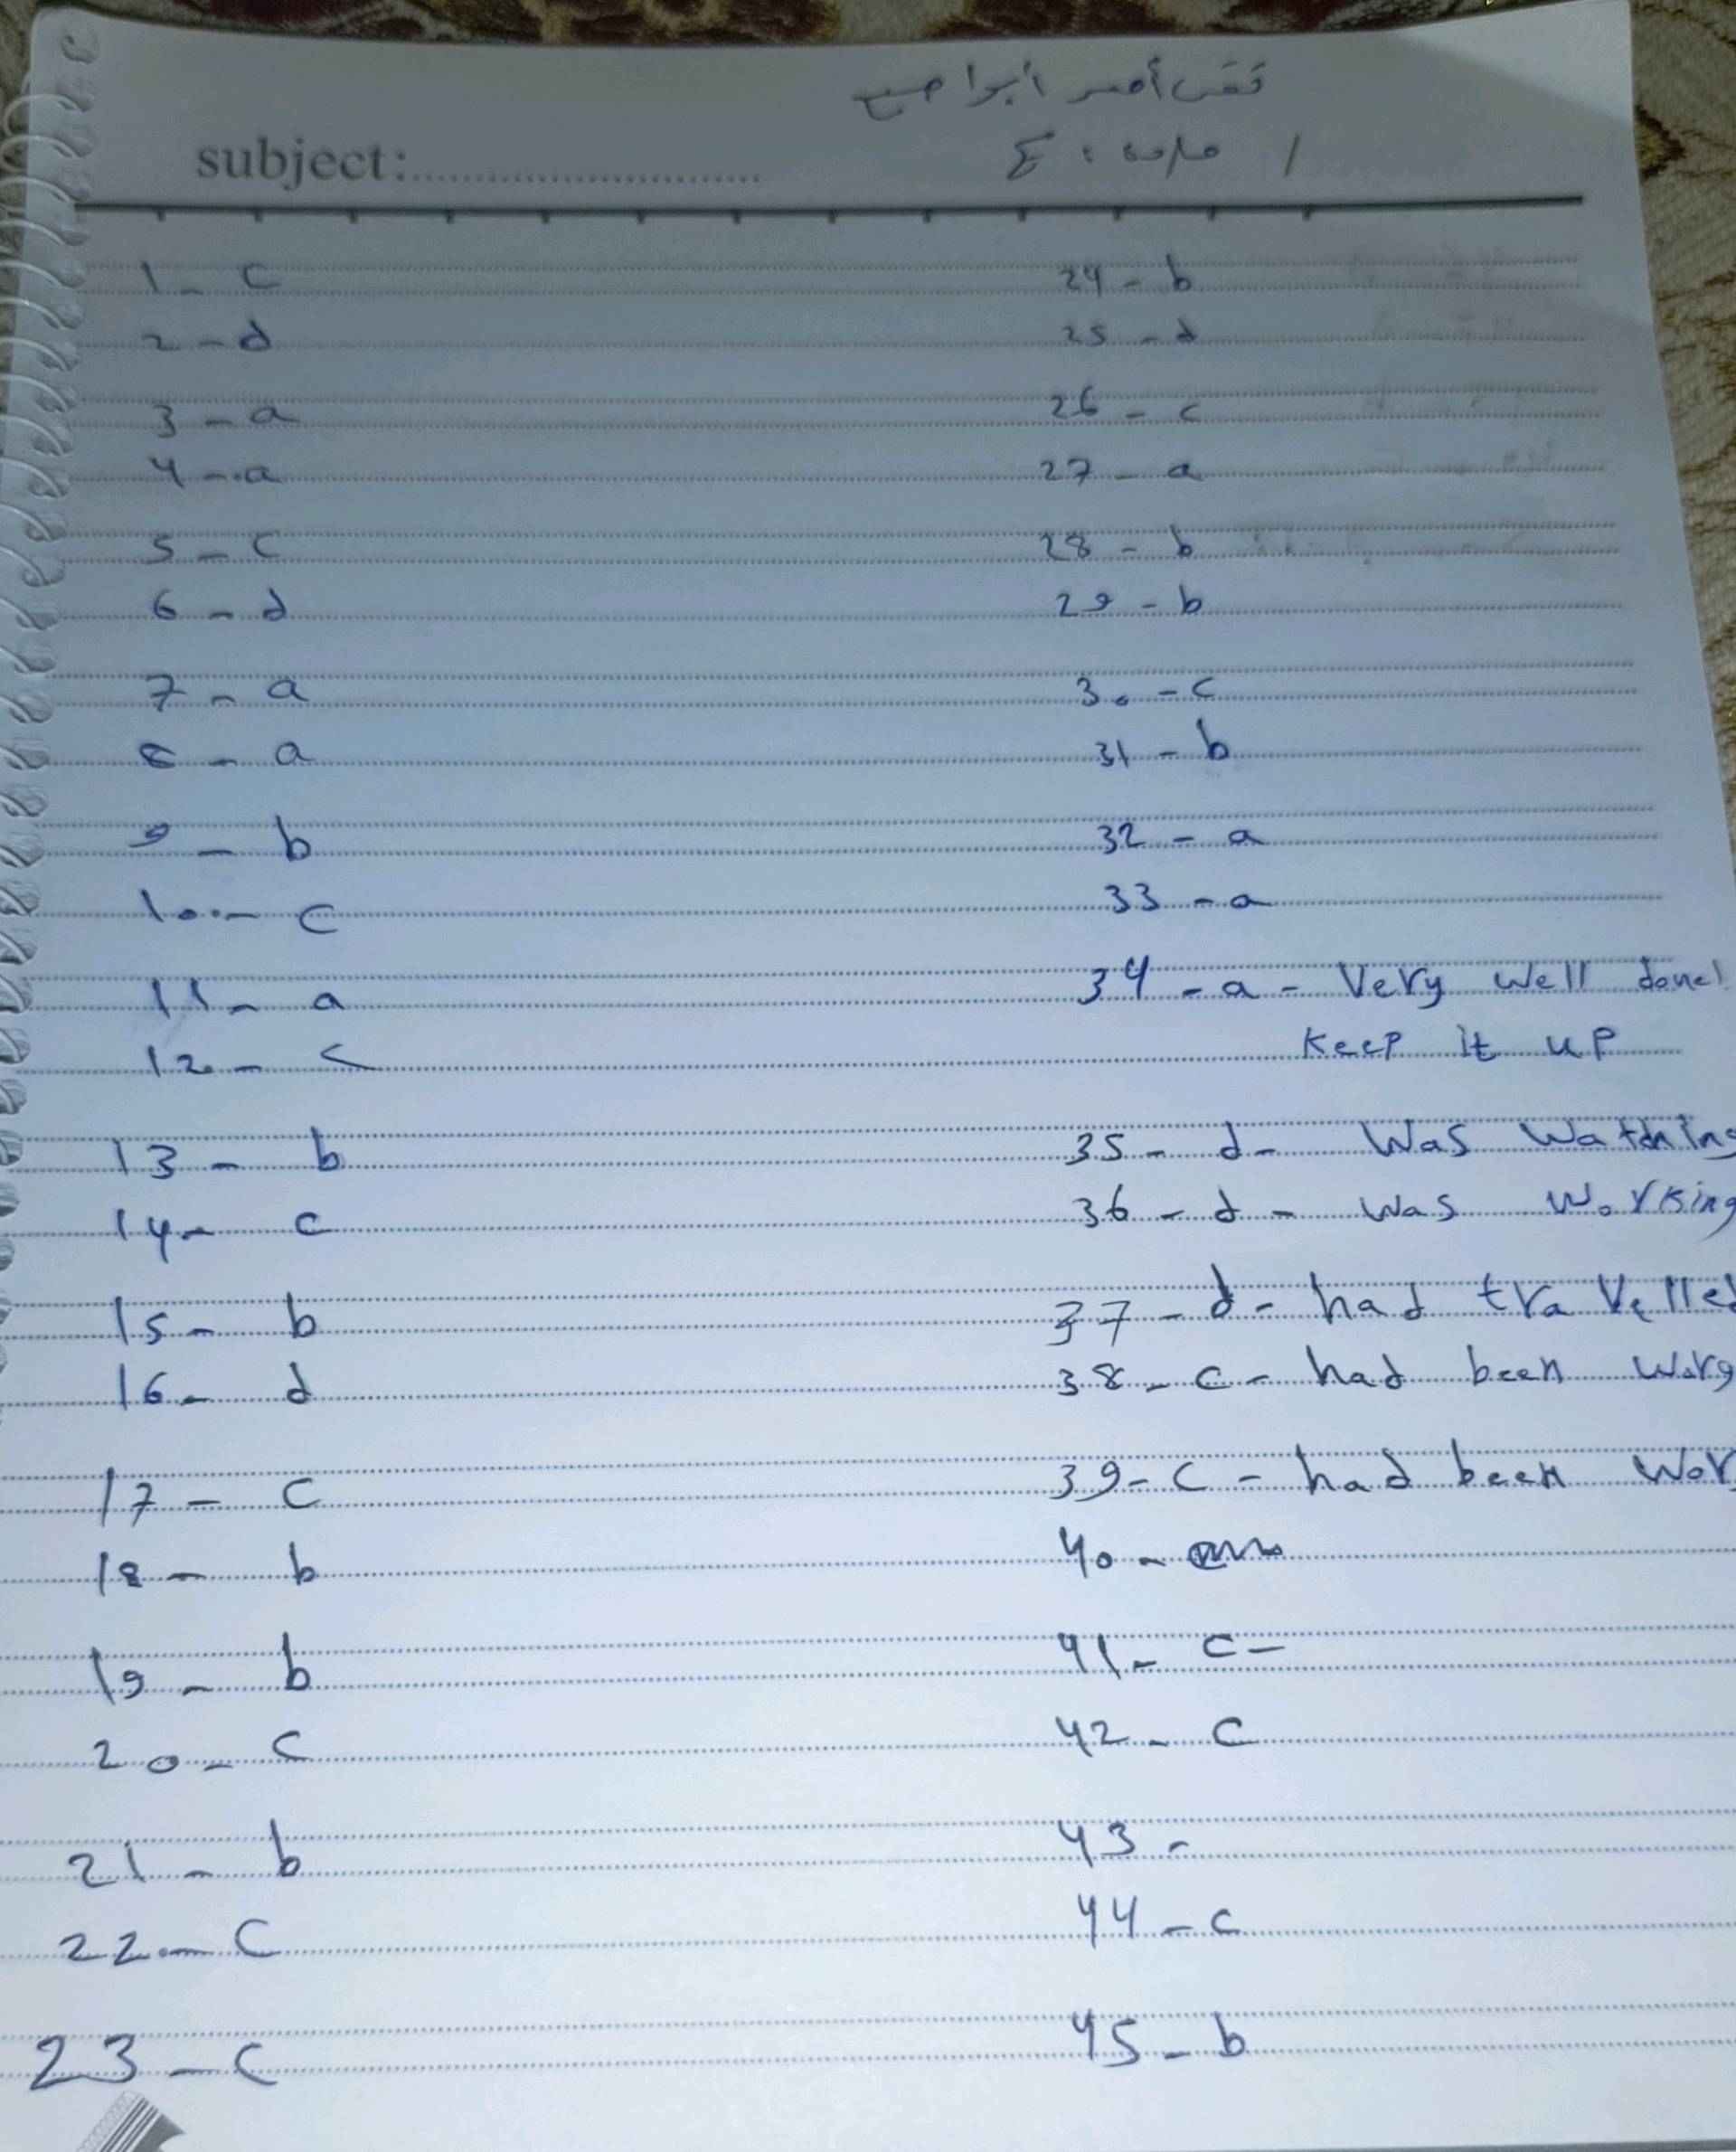 subject:
مادة : ع /
1 - c
2 - d
3 - a
4 - a
5 - c
6 - d
7 - a
8 - a
9 - b
10 - c
11 - a
12 - c
13 - b
14 - c
15 - b
16 - d
17 - c
18 - b
19 - b
20 - c
21 - b
22 - c
23 - c
24 - b
25 - d
26 - c
27 - a
28 - b
29 - b
30 - c
31 - b
32 - a
33 - a
34 - a - Very well done!
Keep it up
35 - d - was watching
36 - d - was working
37 - d - had travelled
38 - c - had been
39 - c - had been
40 -
41 - c -
42 - c
43 -
44 - c
45 - b